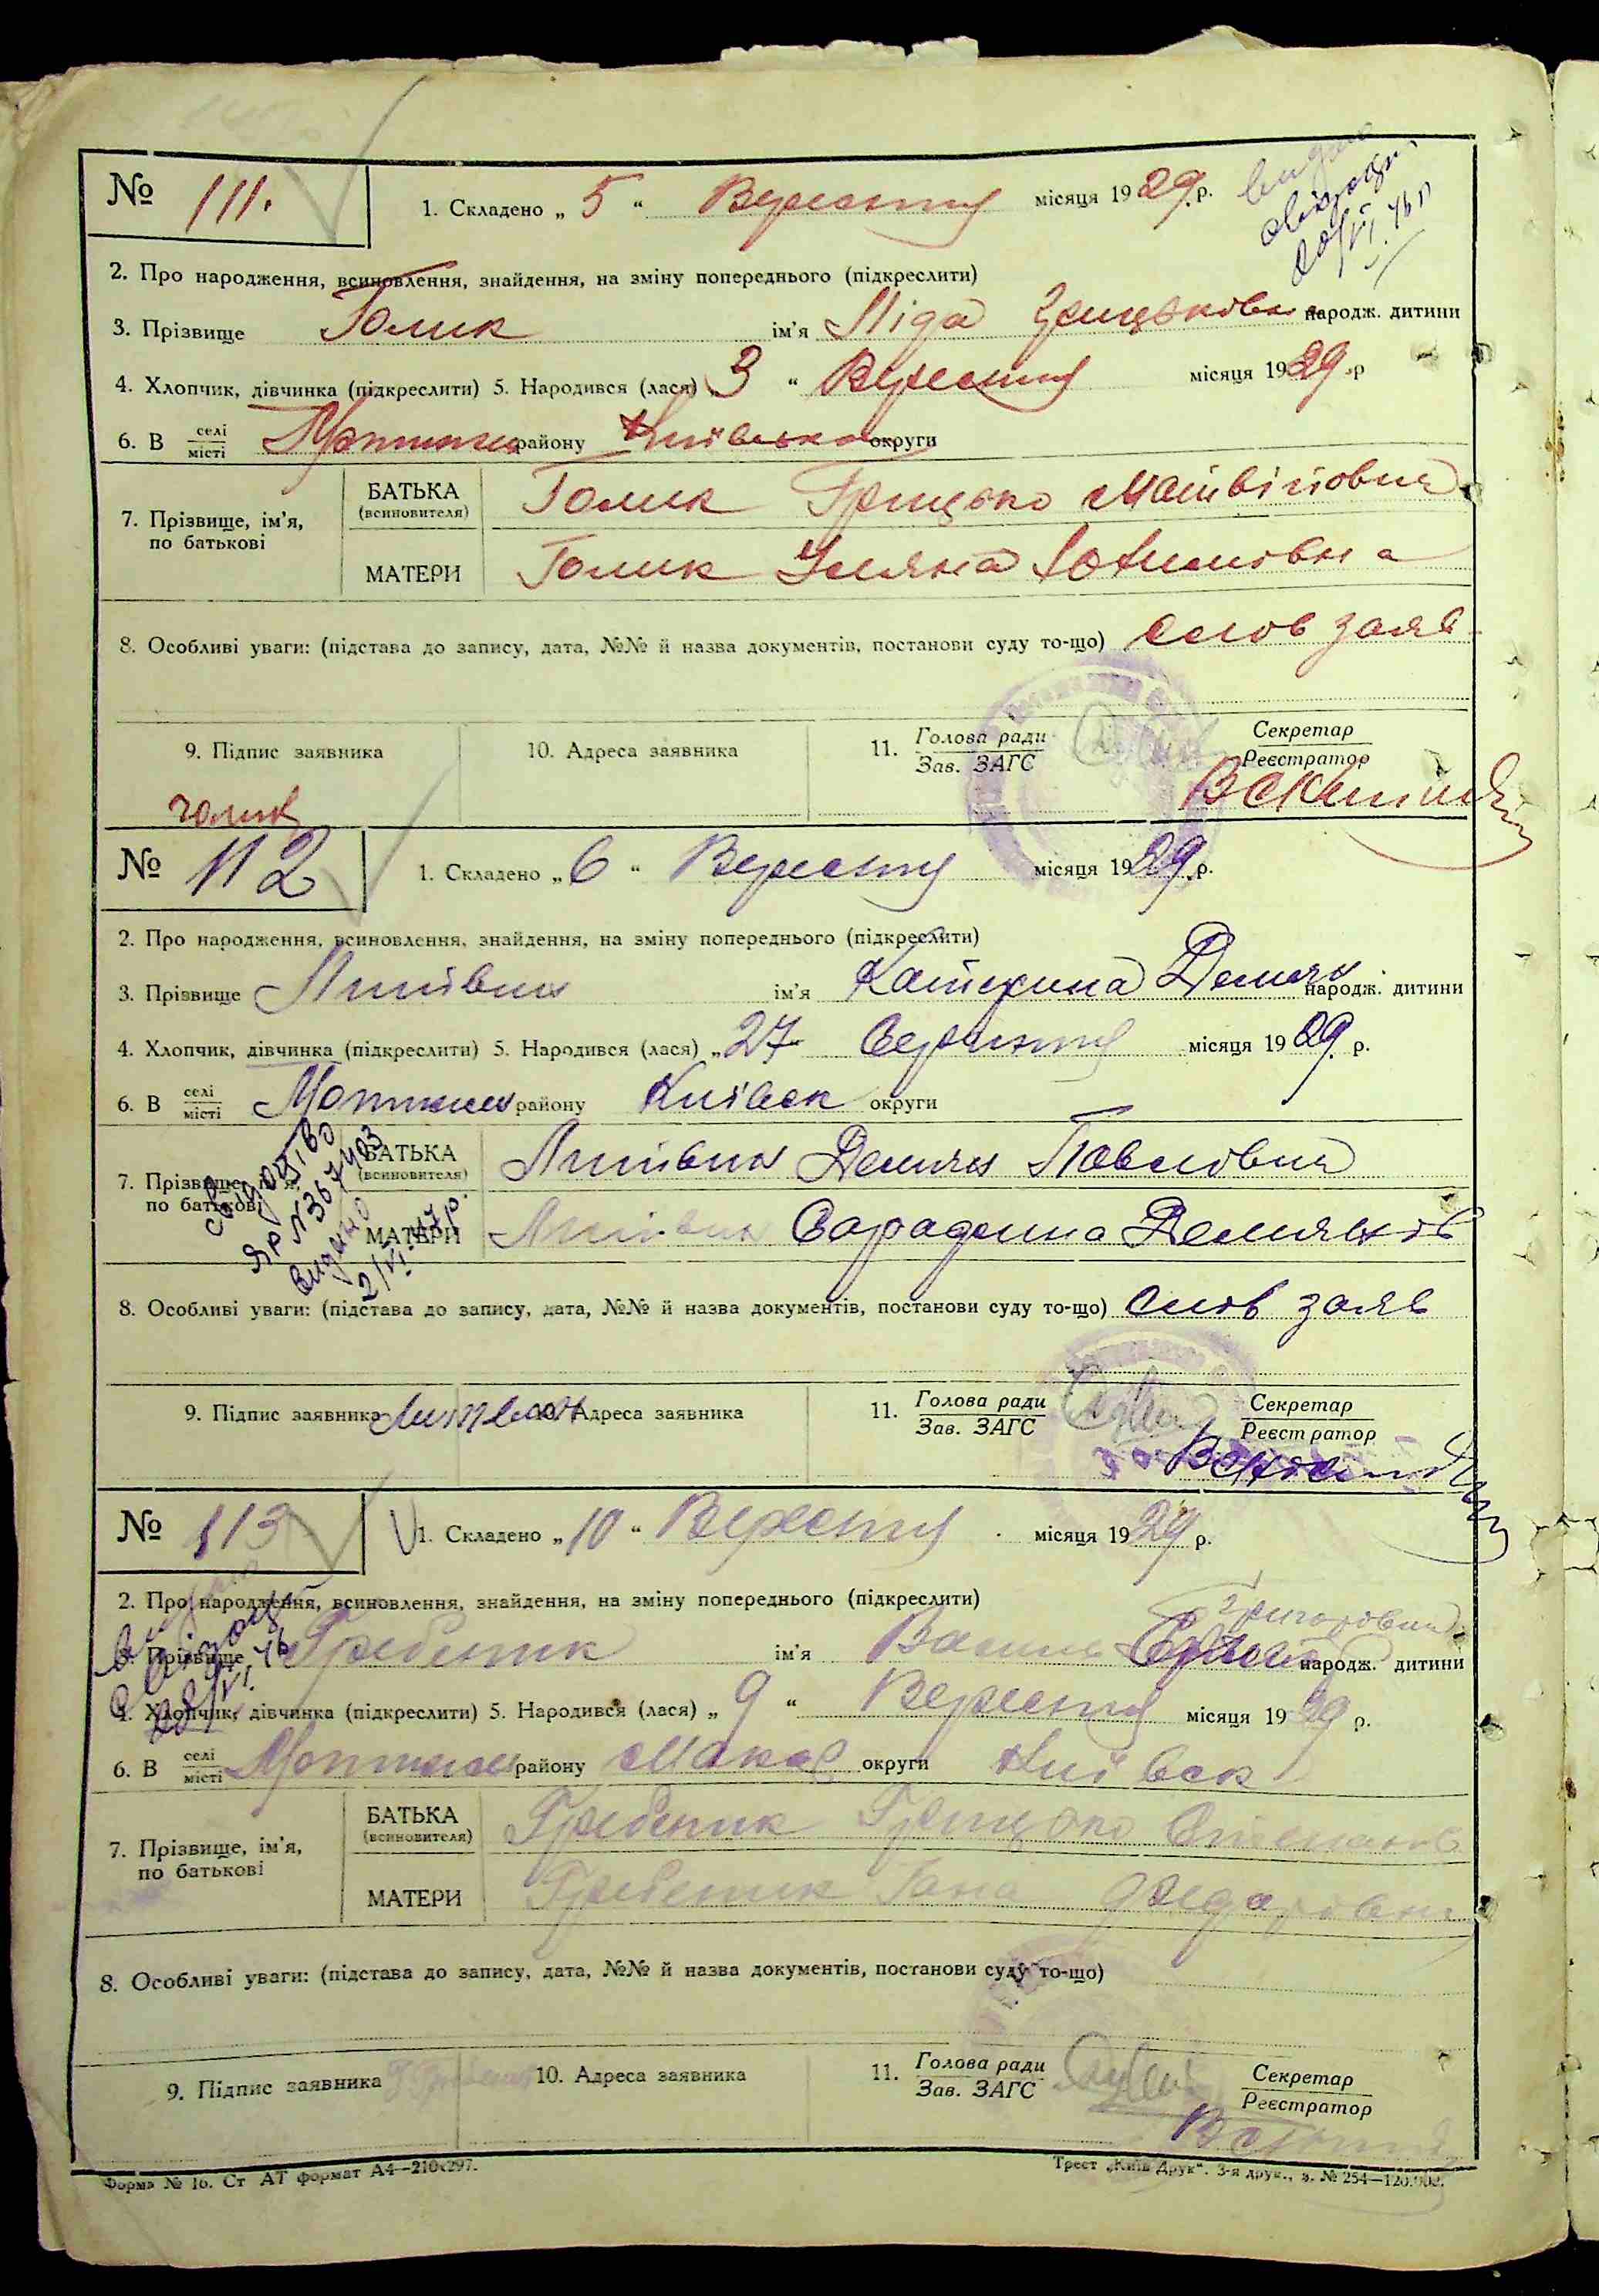 № 111. 1. Складено „ 5 “ Вересння місяця 1929 р.
2. Про народження, всиновлення, знайдення, на зміну попереднього (підкреслити)
3. Прізвище Голик ім'я Ліда Грицькова народж. дитини
4. Хлопчик, дівчинка (підкреслити) 5. Народився (лася) 3 “ Вересння місяця 1929 р
6. В селі місті Мотижин району Київсько округи
7. Прізвище, ім'я, по батькові БАТЬКА (всиновителя) Голик Грицько Матвійович
МАТЕРИ Голик Уляна Юхимовна
8. Особливі уваги: (підстава до запису, дата, №№ й назва документів, постанови суду то-що) слов заяв
9. Підпис заявника 10. Адреса заявника 11. Голова ради Зав. ЗАГС Секретар Реєстратор
голик
№ 112 1. Складено „ 6 “ Вересня місяця 1929 р.
2. Про народження, всиновлення, знайдення, на зміну попереднього (підкреслити)
3. Прізвище Литвин ім'я Катерина Демян народж. дитини
4. Хлопчик, дівчинка (підкреслити) 5. Народився (лася) „ 27 місяця 1929 р.
6. В селі місті Мотижин району Київськ округи
7. Прізвище, ім'я, по батькові БАТЬКА (всиновителя) Литвин Демян Павлович
МАТЕРИ Литвин Демянов
свідоцтво
ЯР № 367403
видано
2/VI 47 р.
8. Особливі уваги: (підстава до запису, дата, №№ й назва документів, постанови суду то-що) слов заяв
9. Підпис заявника Литвин 10. Адреса заявника 11. Голова ради Зав. ЗАГС Секретар Реєстратор
№ 113 1. Складено „ 10 “ Вересня місяця 1929 р.
2. Про народження, всиновлення, знайдення, на зміну попереднього (підкреслити)
Григорович
3. Прізвище Гребеник ім'я Василь народж. дитини
4. Хлопчик, дівчинка (підкреслити) 5. Народився (лася) „ 9 “ Вересня місяця 1929 р.
6. В селі місті Мотижин району Макар округи Київськ
7. Прізвище, ім'я, по батькові БАТЬКА (всиновителя) Гребеник Грицько Степанов
МАТЕРИ Гребеник Гана Федоровна
8. Особливі уваги: (підстава до запису, дата, №№ й назва документів, постанови суду то-що)
9. Підпис заявника 10. Адреса заявника 11. Голова ради Зав. ЗАГС Секретар Реєстратор
Форма № 1б. Ст АТ формат А4—210×297. Трест „Київ-Друк“. 3-я друк., з. № 254—120.000.